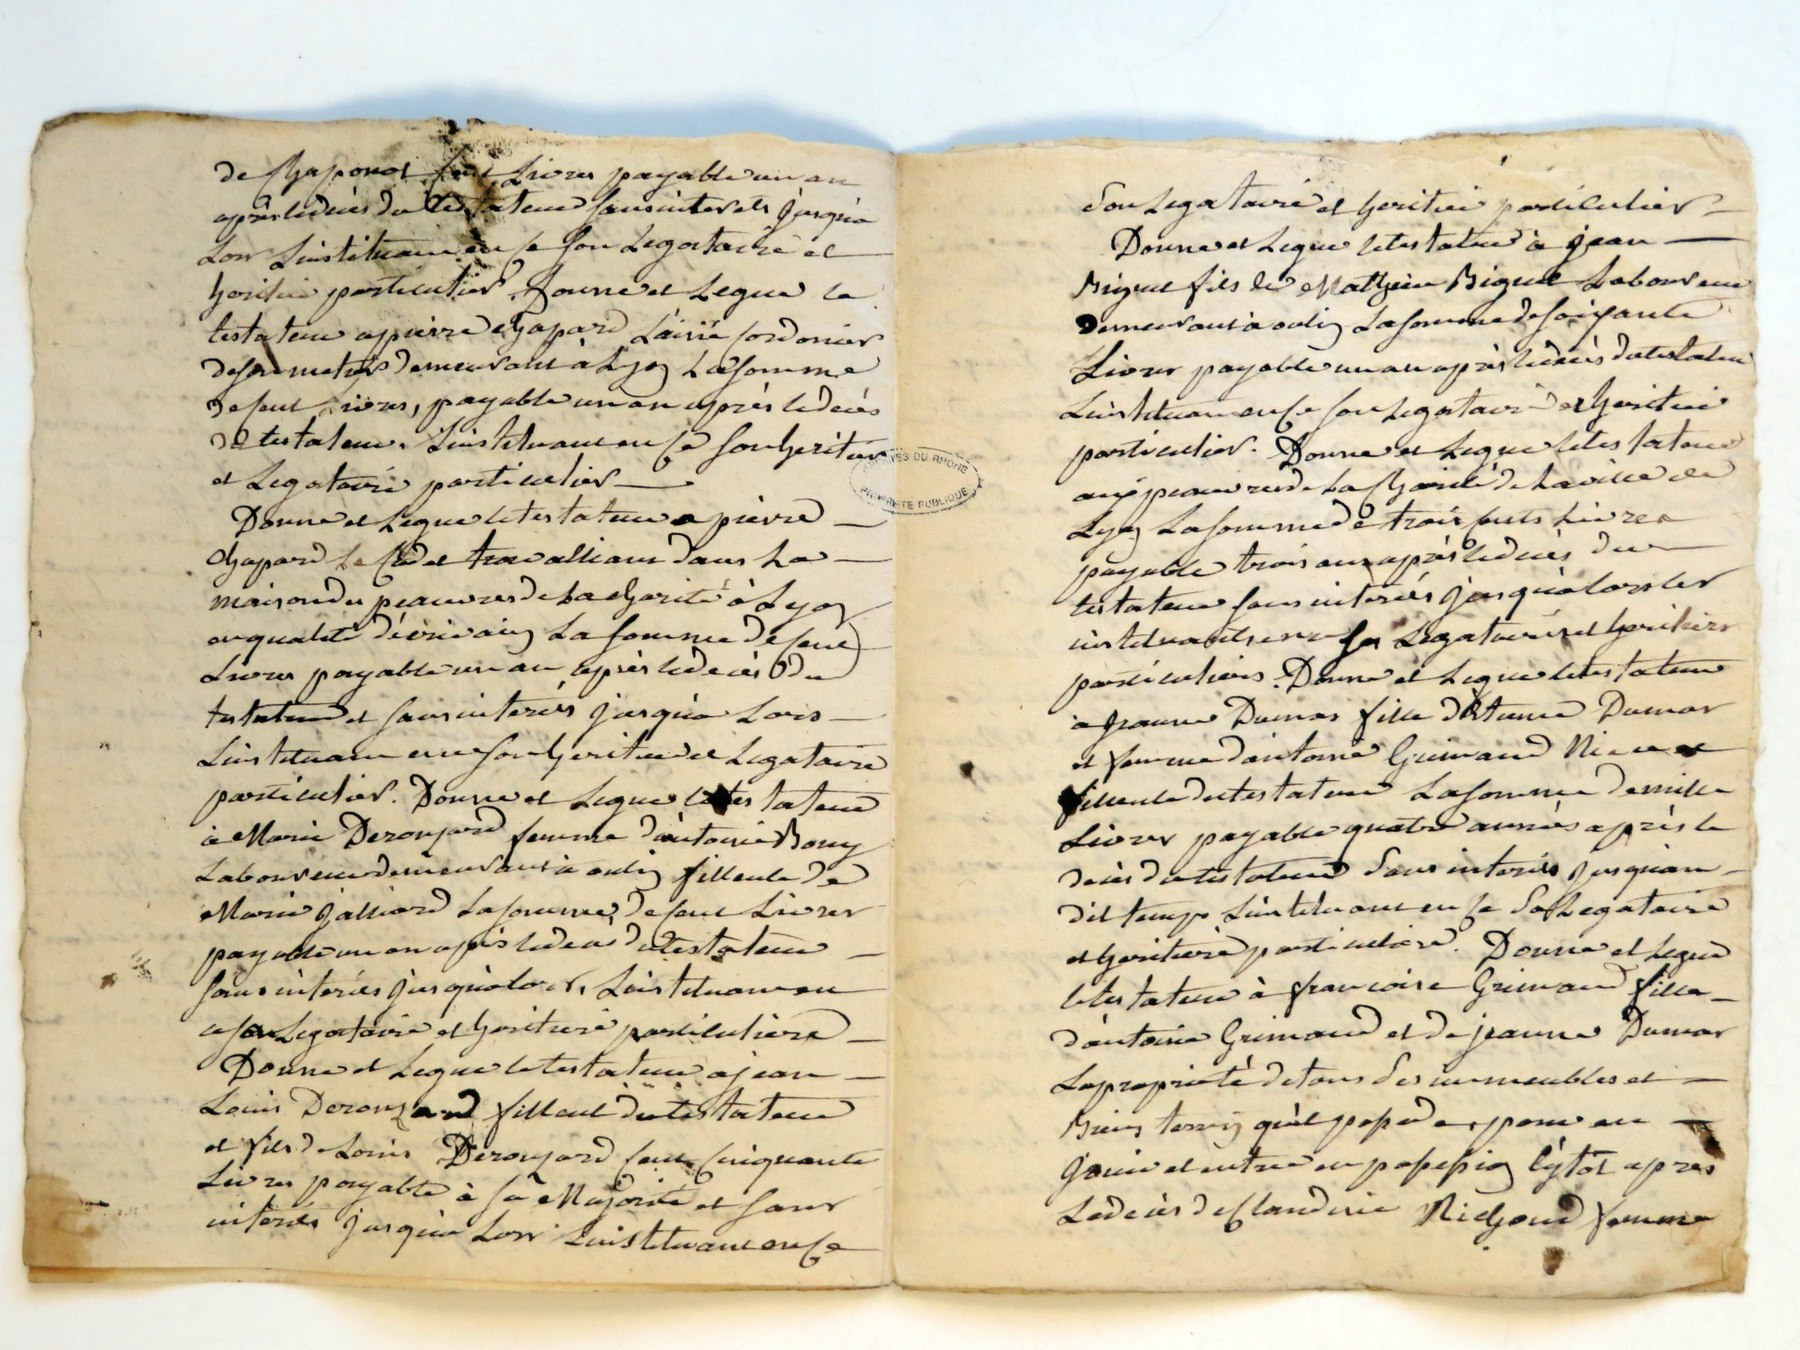 de Chaponot Cent Livres payable un an
après le décès du testateur sans interets jusqu'a
Lors Linstituant en ce son Legataire et
heritier particulier. Donne et Legue le
testateur a pierre Chapard Lainé Cordonier
de son metier demeurant à Lyon La somme
de Cent Livres, payable un an après le decès
du testateur. Linstituant en ce son heritier
et Legatairé particulier
Donne et Legue le testateur a pierre
Chapard Le Cadet travalliant dans La
maison des peauvres de La Charité à Lyon
en qualité d'écrivain La somme de Cent
Livres payable un an après le decès du
testateur et sans interés jusqu'a Lors
Linstituant en ce son heritier et Legataire
particulier. Donne et Legue le testateur
à Marie Deronzard femme d'antoine Bony
Laboureur demeurant à oulin filleule de
Marie Galliard La somme de Cent Livres
payable un an après le decès du testateur
sans interés jusqu'a Lors, Linstituant en
ce son Legatairé et heritieré particuliere
Donne et Legue le testateur a jean
Louis Deronzard filleul du testateur
et fils de Louis Deronzard Cent Cinquante
Livres payable à sa Majorité et sans
interés jusqu'a Lors Linstituant en ce
Son Legatairé et heritier particulier
Donne et Legue le testateur à jean
Biguet fils de Mathieu Biguet Laboureur
demeurant à oulin La somme de soixante
Livres payable un an après le decès du testateur
Linstituant en ce son Legatairé et heritier
particulier. Donne et Legue le testateur
aux peauvres de La Charité de La ville de
Lyon La somme de trois Cents Livres
payable trois ans après le decès du
testateur sans interés jusqu'a Lors Les
instituant en ce ses Legataires et heritiers
particuliers. Donne et Legue le testateur
à jeanne Dumas fille d'Etienne Dumas
et femme d'antoine Grimaud Niece et
filleule du testateur La somme de mille
Livres payable quatre années après le
decès du testateur Sans interés jusqu'au
dit temps Linstituant en ce Sa Legataire
et heritiere particuliere. Donne et Legue
le testateur à francoise Grimaud fille
d'antoine Grimaud et de jeanne Dumas
La proprieté de tous Ses immeubles et
Biens terrin qu'il possede, pour en
jouir et entrer en possession sitôt apres
Le decès de Claudine Richoud femme
ARCHIVES DU RHONE
PROPRIETE PUBLIQUE